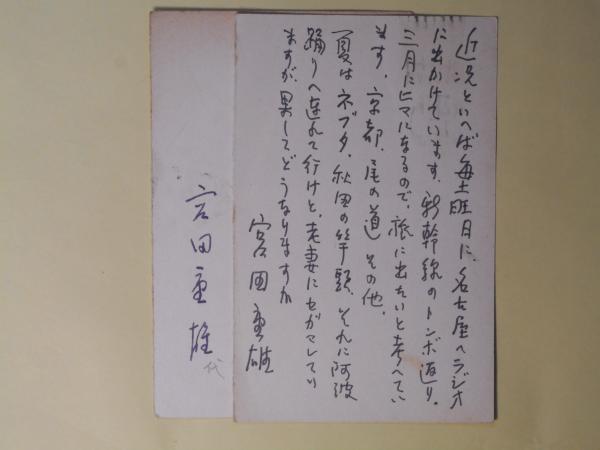 近況といへば毎土曜日に、名古屋へラジオ
に出かけています。新幹線のトンボ返り。
三月にヒマになるので、旅に出たいと考へてい
ます。京都、尾の道 その他。
夏はネブタ、秋田の竿頭、それに阿波
踊りへ連れて行けと、老妻にセガマレてい
ますが、果してどうなりますか
宮田重雄
宮田重雄
代